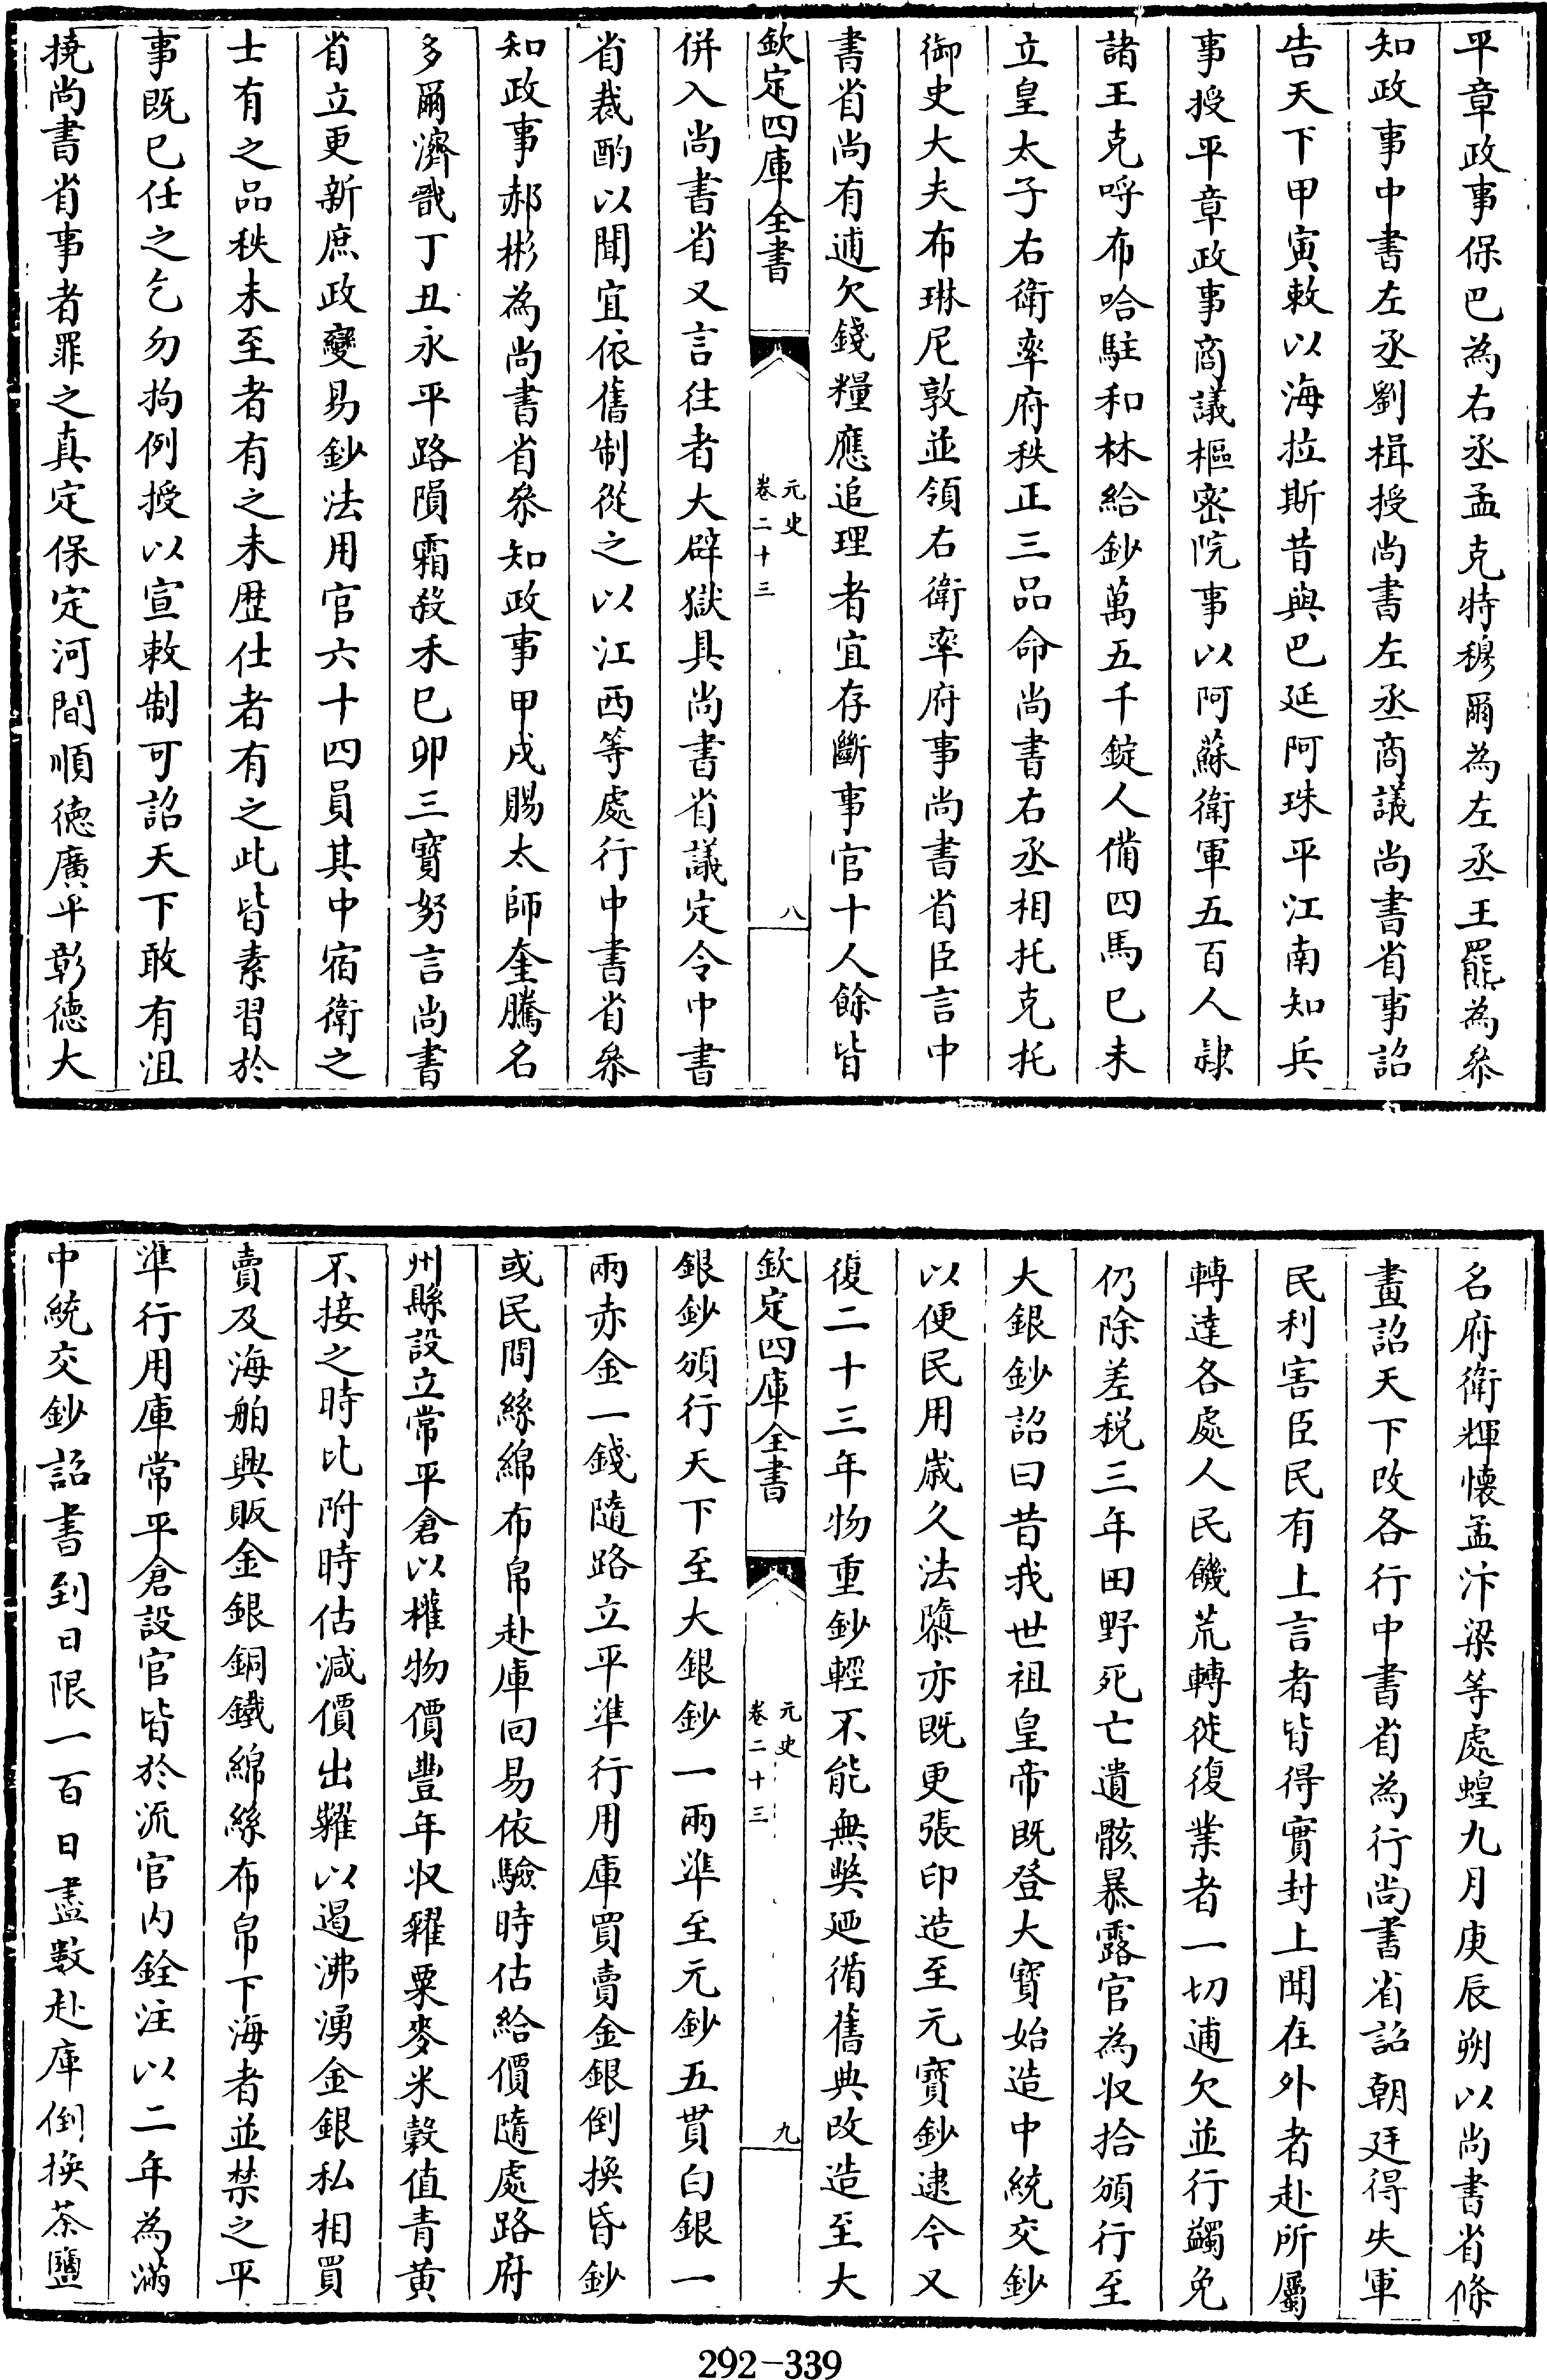 平章政事保巴為右丞孟克特穆爾為左丞王羆為叅
知政事中書左丞劉楫授尚書左丞商議尚書省事詔
告天下甲寅敕以海拉斯昔與巴延阿珠平江南知兵
事授平章政事商議樞密院事以阿蘇衛軍五百人隷
諸王克呼布哈駐和林給鈔萬五千錠人備四馬已未
立皇太子右衛率府秩正三品命尚書右丞相托克托
御史大夫布琳尼敦並領右衛率府事尚書省臣言中
書省尚有逋欠錢糧應追理者宜存斷事官十人餘皆
欽定四庫全書
元史
卷二十三
八
併入尚書省又言往者大辟獄具尚書省議定令中書
省裁酌以聞宜依舊制從之以江西等處行中書省叅
知政事郝彬為尚書省叅知政事甲戌賜太師奎騰名
多爾濟戩丁丑永平路隕霜殺禾已卯三寶努言尚書
省立更新庶政變易鈔法用官六十四員其中宿衛之
士有之品秩未至者有之未歴仕者有之此皆素習於
事既已任之乞勿拘例授以宣敕制可詔天下敢有沮
撓尚書省事者罪之真定保定河間順德廣平彰德大
名府衛輝懐孟汴梁等處蝗九月庚辰朔以尚書省條
畫詔天下改各行中書省為行尚書省詔朝廷得失軍
民利害臣民有上言者皆得實封上聞在外者赴所屬
轉達各處人民饑荒轉徙復業者一切逋欠並行蠲免
仍除差税三年田野死亡遺骸暴露官為收拾頒行至
大銀鈔詔曰昔我世祖皇帝既登大寶始造中統交鈔
以便民用嵗久法隳亦既更張印造至元寶鈔逮今又
復二十三年物重鈔輕不能無弊廼循舊典改造至大
欽定四庫全書
元史
卷二十三
九
銀鈔頒行天下至大銀鈔一兩準至元鈔五貫白銀一
兩赤金一錢隨路立平準行用庫買賣金銀倒換昏鈔
或民間絲綿布帛赴庫回易依驗時估給價隨處路府
州縣設立常平倉以權物價豐年收糴粟麥米榖值青黄
不接之時比附時估減價出糶以遏沸湧金銀私相買
賣及海舶興販金銀銅鐵綿絲布帛下海者並禁之平
準行用庫常平倉設官皆於流官内銓注以二年為滿
中統交鈔詔書到日限一百日盡數赴庫倒換茶鹽
292-339